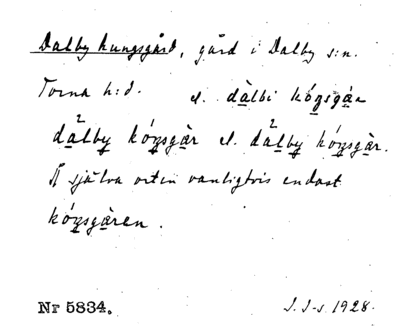 Dalby kungsgård, gård i Dalby s:n.
Torna h:d. el. dàlbi kóŋsgån
dàlby kóŋsgår el. dàlby kóŋsgår.
På själva orten vanligtvis endast
kóŋsgåren.
Nr 5834. I. I-s. 1928.